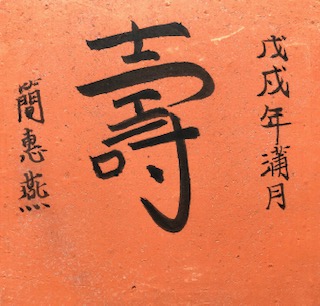 戊戌年蒲月
壽
簡惠燕